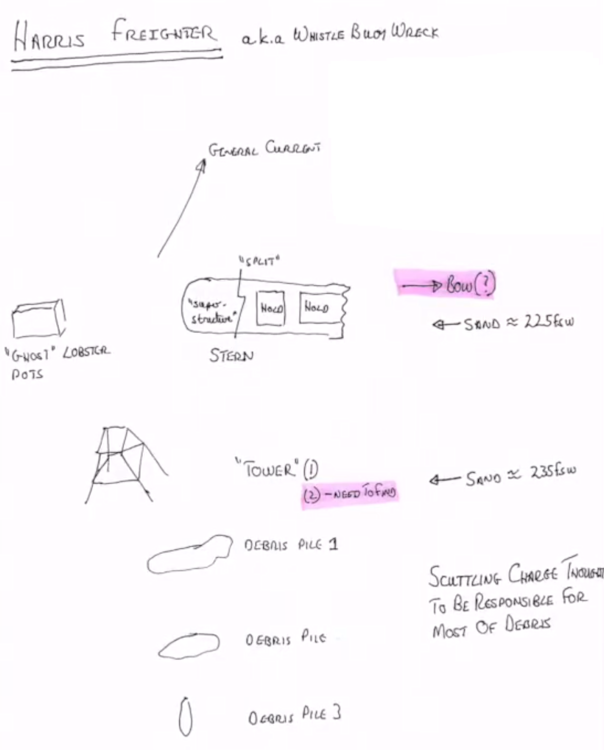 HARRIS FREIGHTER a.k.a WHISTLE BUOY WRECK
GENERAL CURRENT
"SPLIT"
→ BOW(?)
"super-
structure"
HOLD
HOLD
← SAND ≈ 225fsw
"GHOST" LOBSTER
POTS
STERN
"TOWER" (1)
(2) - NEED TO FIND
← SAND ≈ 235fsw
DEBRIS PILE 1
SCUTTLING CHARGE THOUGHT
TO BE RESPONSIBLE FOR
MOST OF DEBRIS
DEBRIS PILE
DEBRIS PILE 3